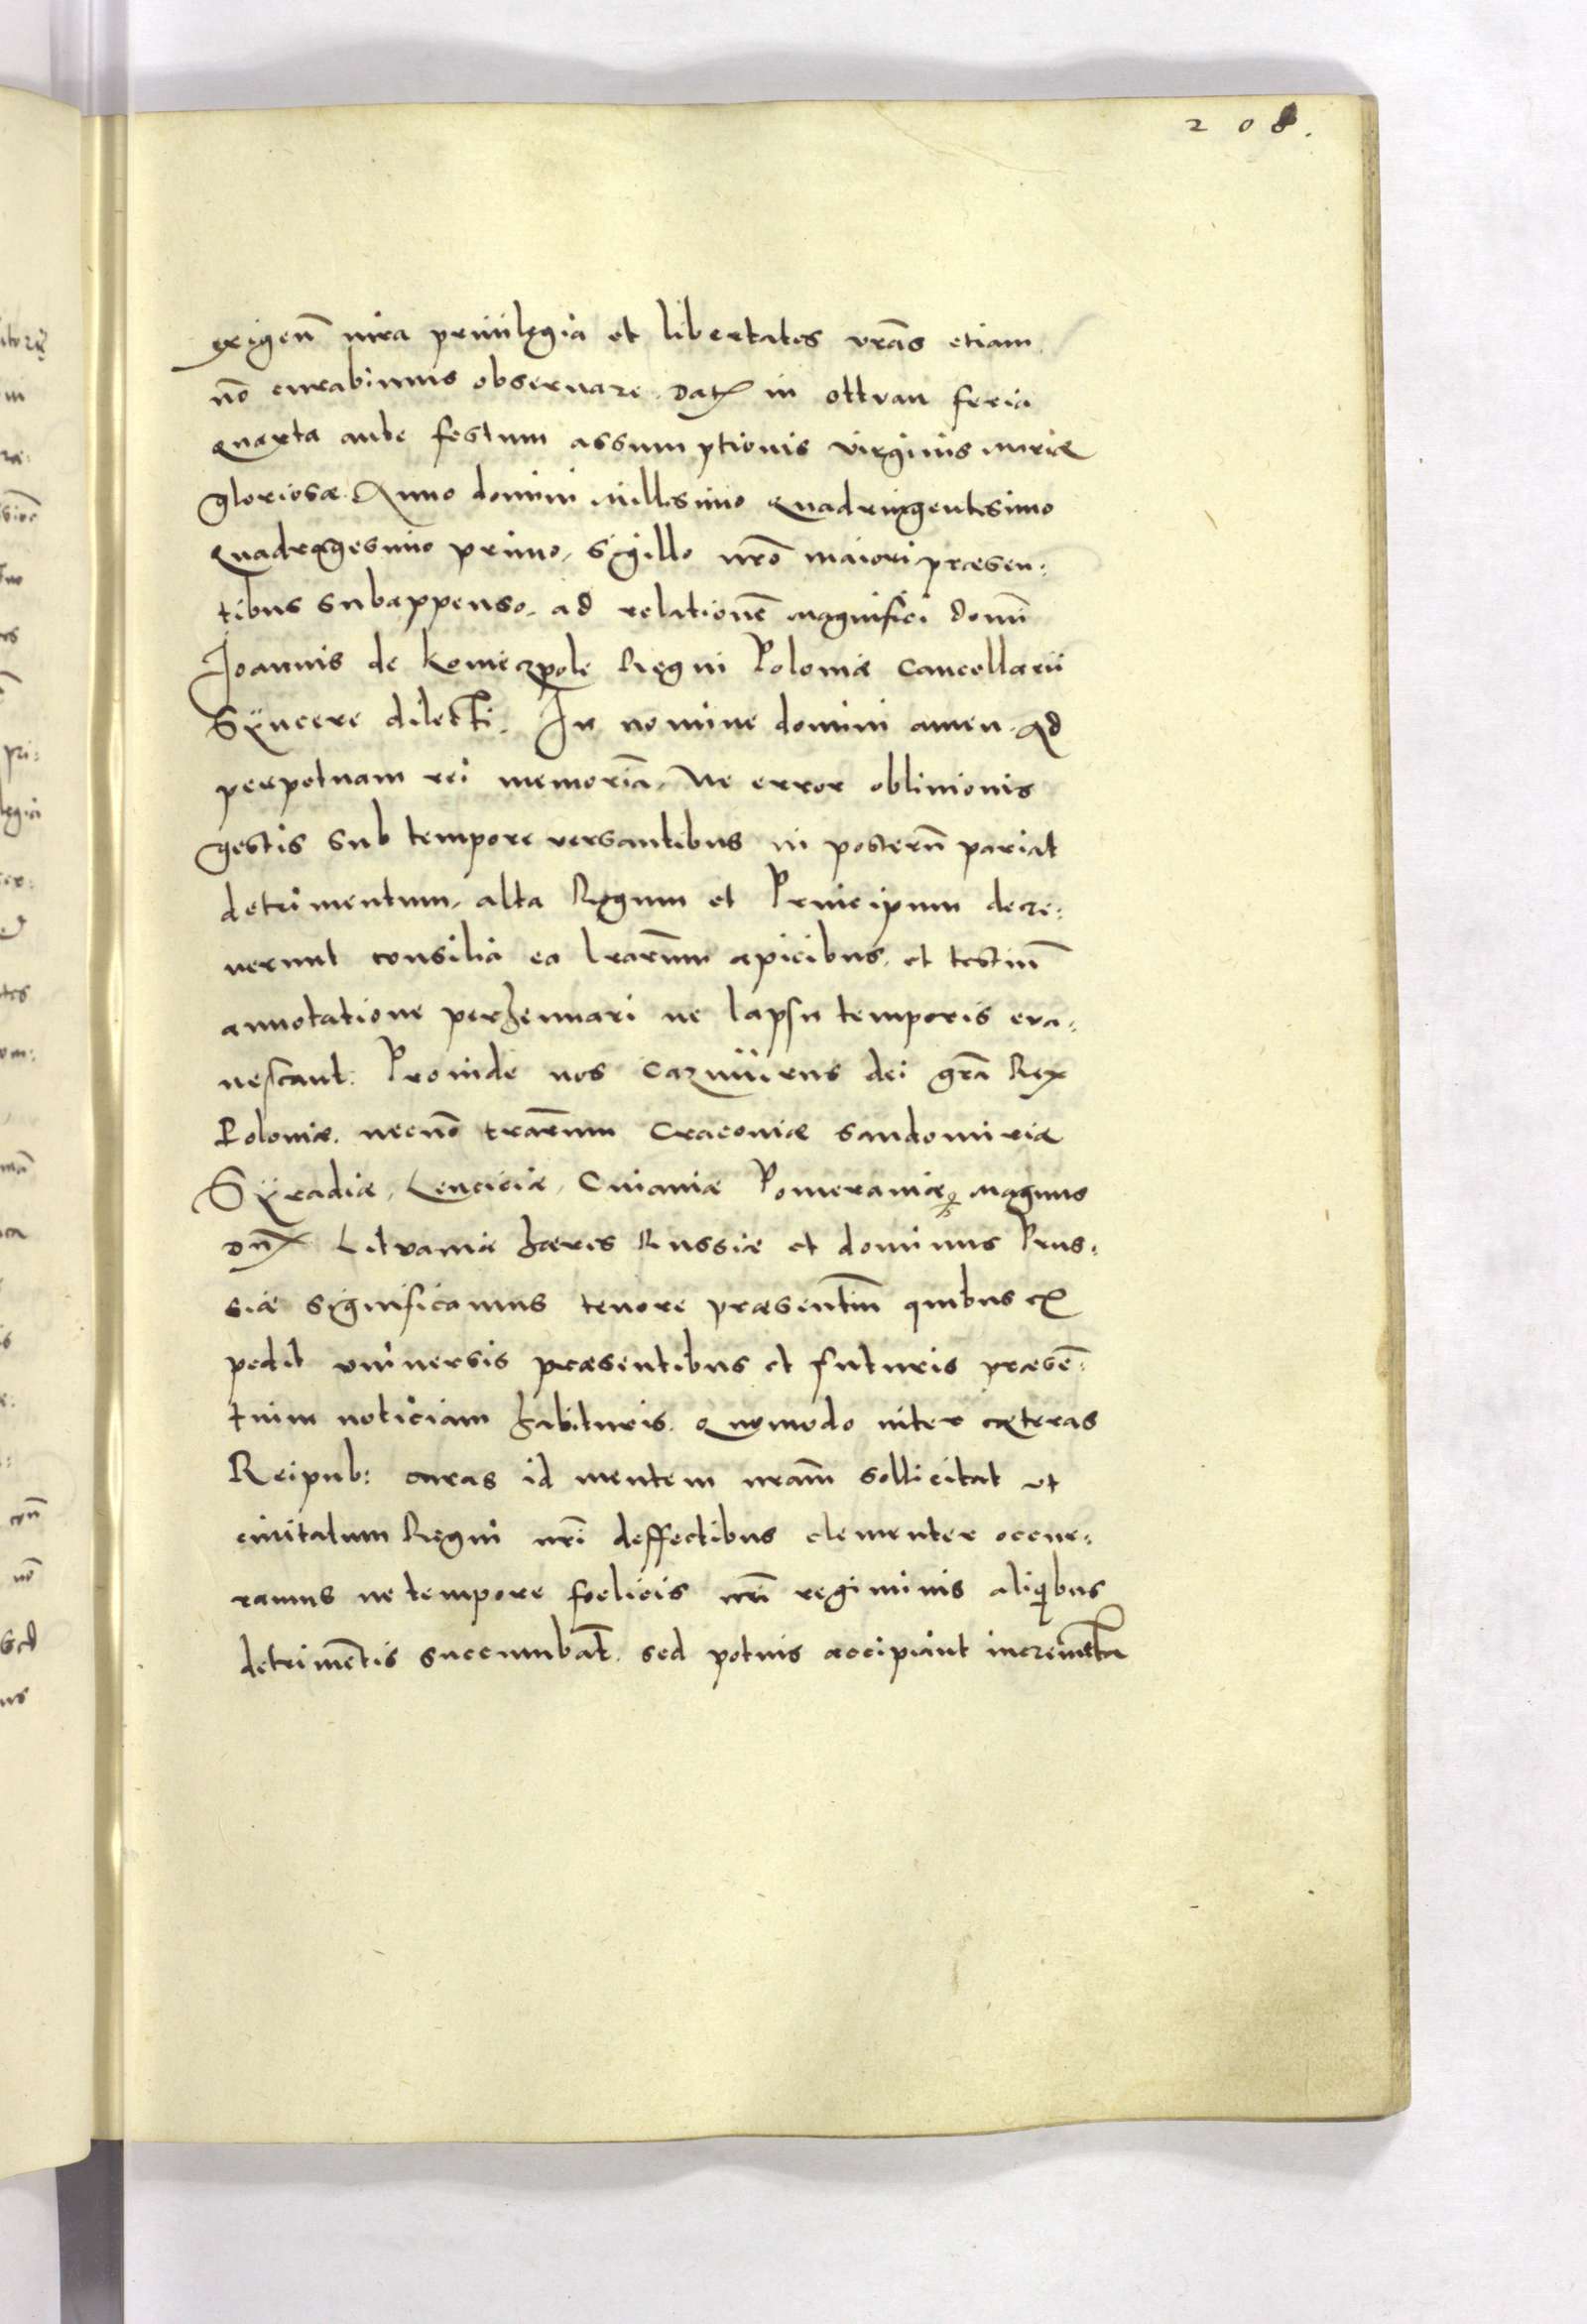 208.
exigen̄ iura priuilegia et libertates vrās etiam
nō curabimus obseruare. Dat in ottvan feria
Quarta ante festum assumptionis virginis Mariæ
gloriosæ. Anno domini millesimo Quadringentesimo
Quadragesimo primo, sigillo nrō maiori præsen:
tibus subappenso. ad relationē Magnifici domī
Joannis de koniecpole Regni Poloniæ Cancellarii
Sÿncere dilecti. In nomine domini amen. Ad
perpetuam rei memoriā, Ne error obliuionis
gestis sub tempore versantibus in posterū pariat
detrimentum, alta Regum et Principum decre:
uerunt consilia ea lrarum̄ apicibus, et testiū
annotatione perhennari ne lapsu temporis eua:
nescant. Proinde nos Cazimirus dei grā Rex
Poloniæ. necnō trarum̄ Craconiæ Sandomiriæ
Sÿradiæ, Lenciciæ, Cuiauiæ Pomeraniæq Magnus
Dn̄x Litvaniæ hæres Russiæ et dominus Prus:
siæ significamus tenore præsentiū quibus ex
pedit vniuersis præsentibus et futuris præsē:
tium noticiam habituris. Quomodo inter cæteras
Reipub: curas id mentem nram̄ sollicitat vt
ciuitatum Regni nrī deffectibus clementer occur:
ramus ne tempore foelicis nrī regiminis aliqibus
detrimētis succumbāt. sed potius accipiant incremēta